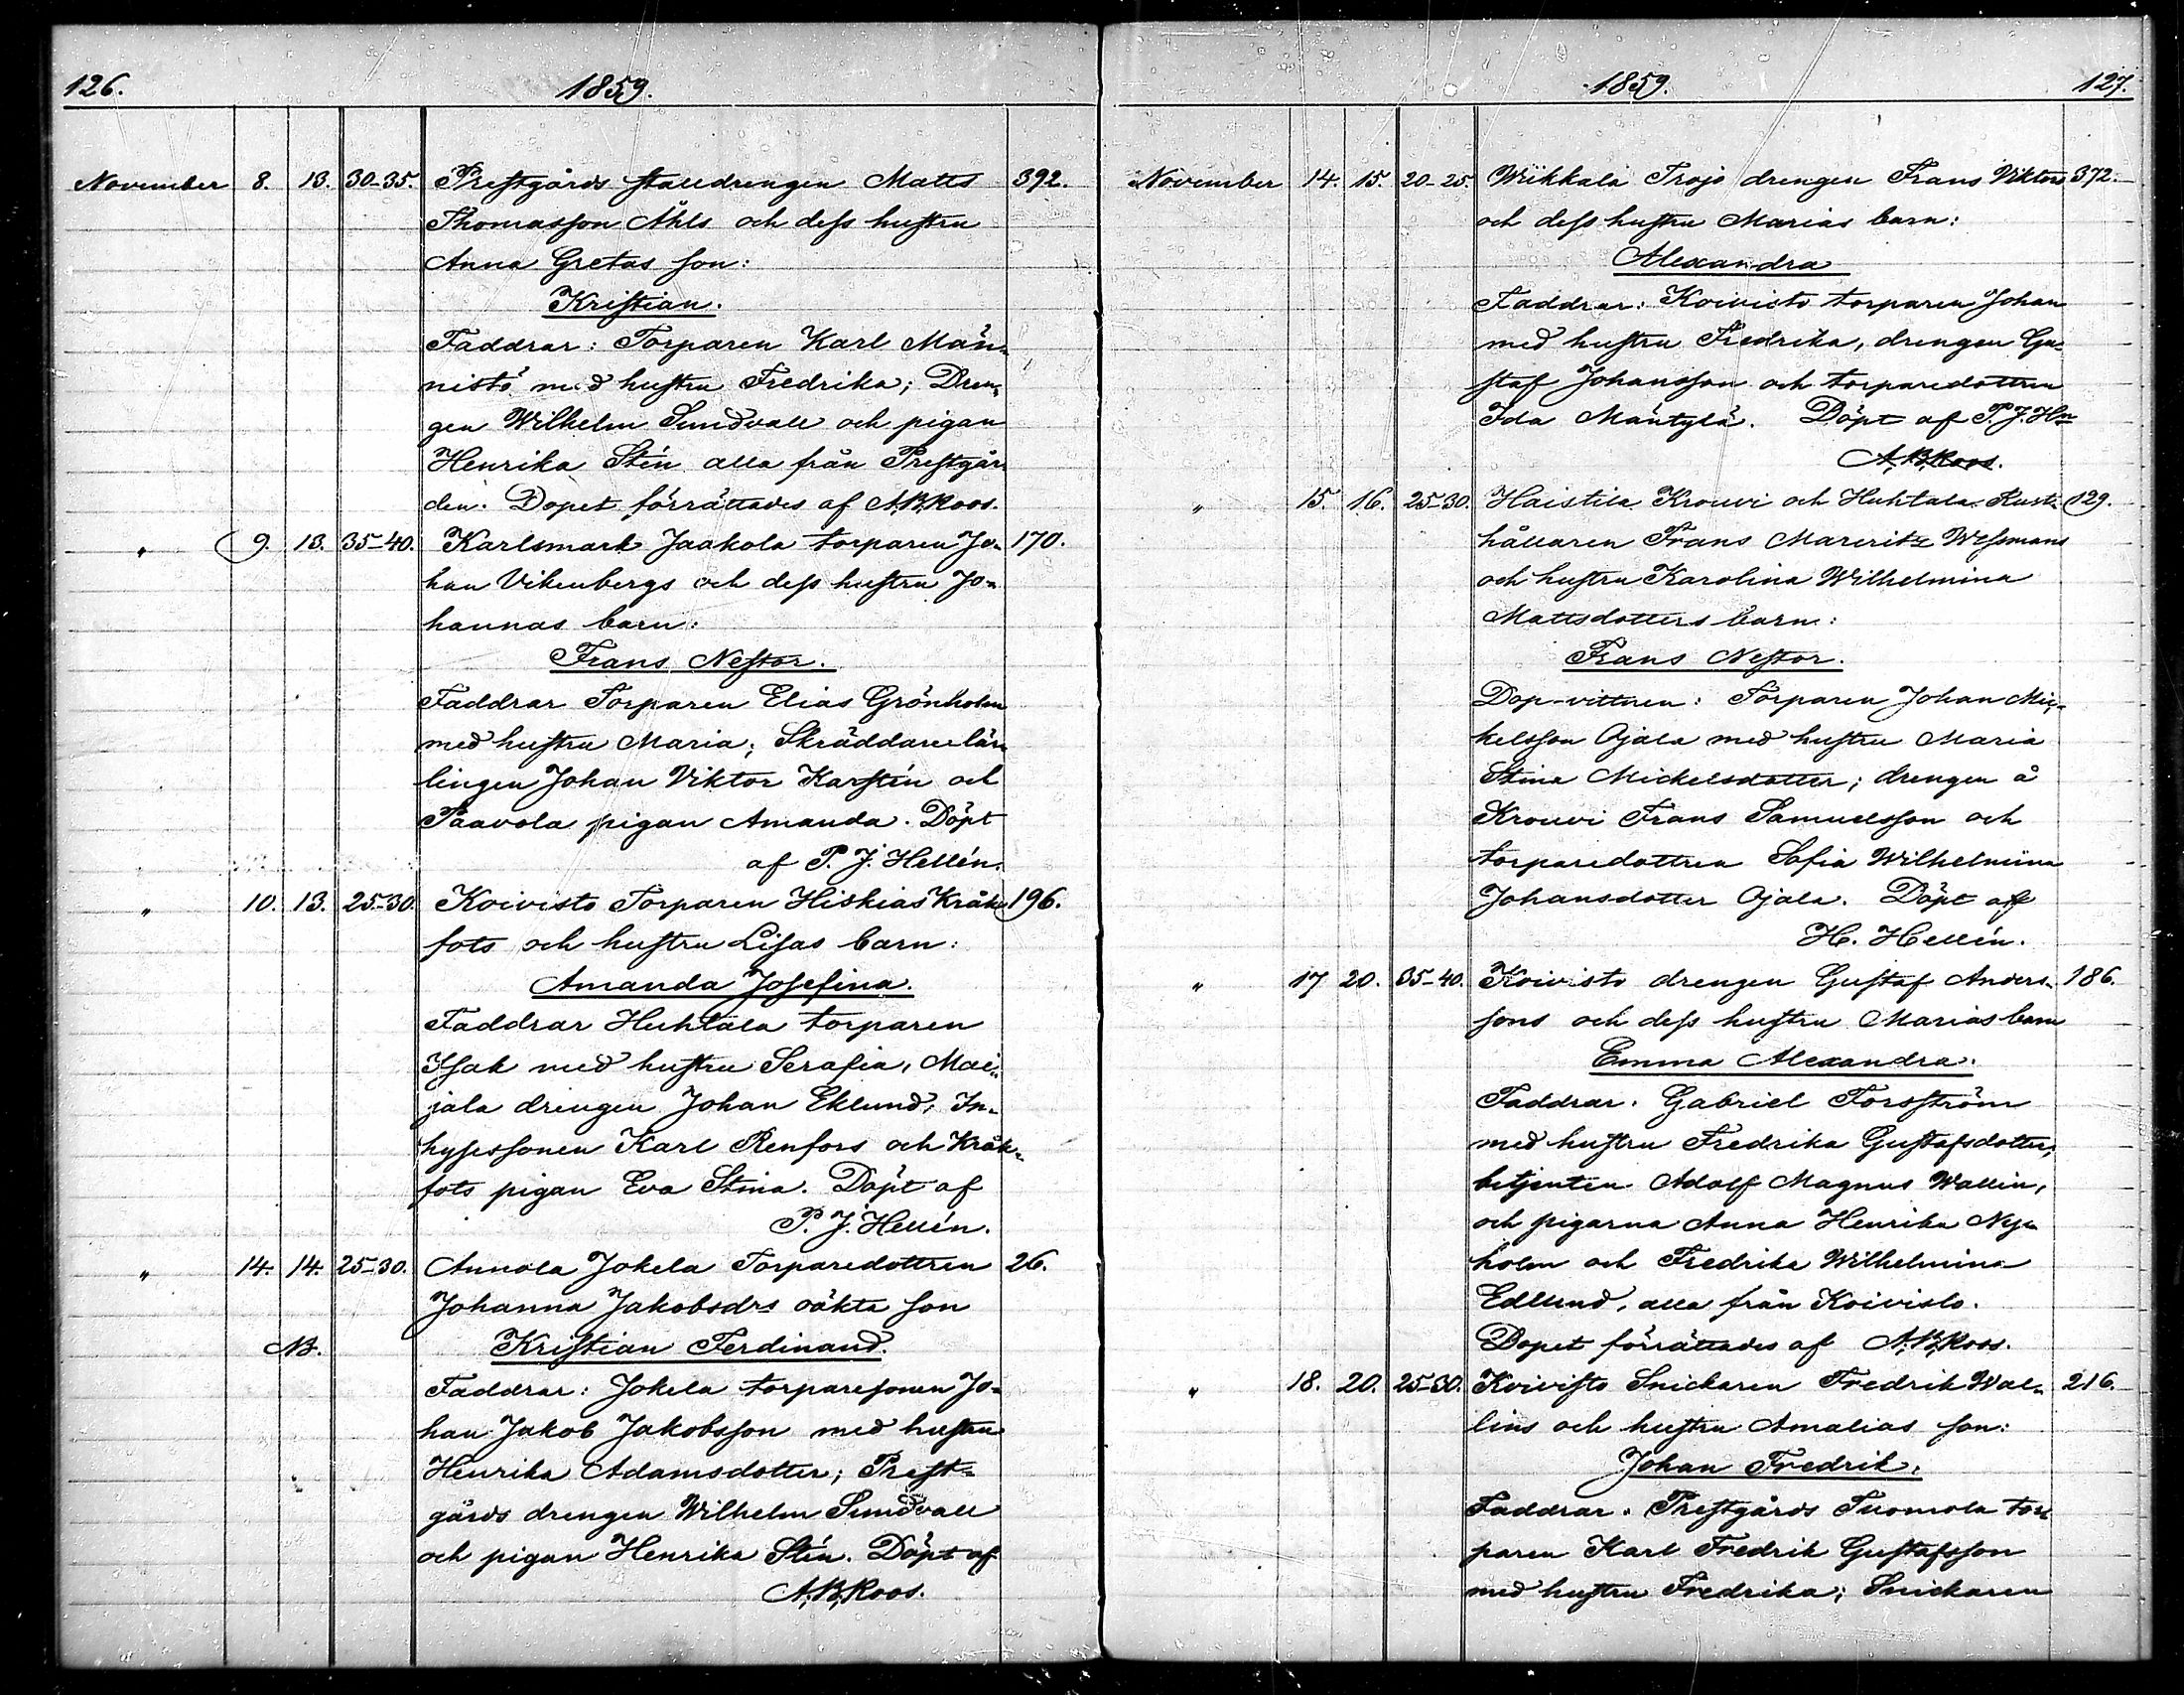 126. 1859.
November 8. 13. 30-35. Prestgårds stalldrengen Matts 392.
Thomasson Åhls och dess hustru
Anna Gretas son:
Kristian.
Faddrar: Torparen Karl Män-
nistö med hustru Fredrika; Dren-
gen Wilhelm Sundvall och pigan
Henrika Stén alla från Prestgår-
den. Dopet förrättades af A.B.Roos.
" 9. 13. 35-40. Karlsmark Jaakola torparen Jo- 170.
han Vikenbergs och dess hustru Jo-
hannas barn:
Frans Nestor.
Faddrar Torparen Elias Grönholm
med hustru Maria; Skräddarelär-
lingen Johan Viktor Karstén och
Paavola pigan Amanda. Döpt
af P. J. Hellén.
" 10. 13. 25-30. Koivisto Torparen Hiskias Kråk- 196.
fots och hustru Lisas barn:
Amanda Josefina.
Faddrar Huhtala torparen
Isak med hustru Serafia, Mai-
jala drengen Johan Eklund, In-
hysessonen Karl Renfors och Kråk-
fots pigan Eva Stina. Döpt af
P. J. Hellén.
" 14. 14. 25-30. Annola Jokela Torparedottren 26.
Johanna Jakobsdrs oäkta son
NB. Kristian Ferdinand.
Faddrar: Jokela torparesonen Jo-
han Jakob Jakobsson med hustru
Henrika Adamsdotter; Prest-
gårds drengen Wilhelm Sundvall
och pigan Henrika Stén. Döpt af
A.B.Roos.
1859. 127.
November 14. 15. 20-25. Wiikkala Trojo drengen Frans Viktors 372.
och dess hustru Marias barn:
Alexandra
Faddrar: Koivisto torparen Johan
med hustru Fredrika, drengen Gu-
staf Johansson och torparedottren
Ida Mäntylä. Döpt af P. J. Hln
A.B.Roos.
" 15. 16. 25-30. Haistila Krouvi och Huhtala Rust- 129.
hållaren Frans Mauritz Wessmans
och hustru Karolina Wilhelmina
Mattsdotters barn:
Frans Nestor.
Dop-vittnen: Torparen Johan Mic-
kelsson Ojala med hustru Maria
Stina Mickelsdotter; drengen å
Krouvi Frans Samuelsson och
torparedottren Sofia Wilhelmina
Johansdotter Ojala. Döpt af
H. Hellén.
" 17 20. 35-40. Koivisto drengen Gustaf Anders- 186.
sons och dess hustru Marias barn
Emma Alexandra.
Faddrar. Gabriel Forsström
med hustru Fredrika Gustafsdotter;
betjenten Adolf Magnus Wallin,
och pigorna Anna Henrika Ny-
holm och Fredrika Wilhelmina
Edlund, alla från Koivisto.
Dopet förrättades af A.B.Roos.
" 18. 20. 25-30. Koivisto Snickaren Fredrik Wal- 216.
lins och hustru Amalias son:
Johan Fredrik.
Faddrar. Prestgårds Tuomola tor-
paren Karl Fredrik Gustafsson
med hustru Fredrika; Snickaren